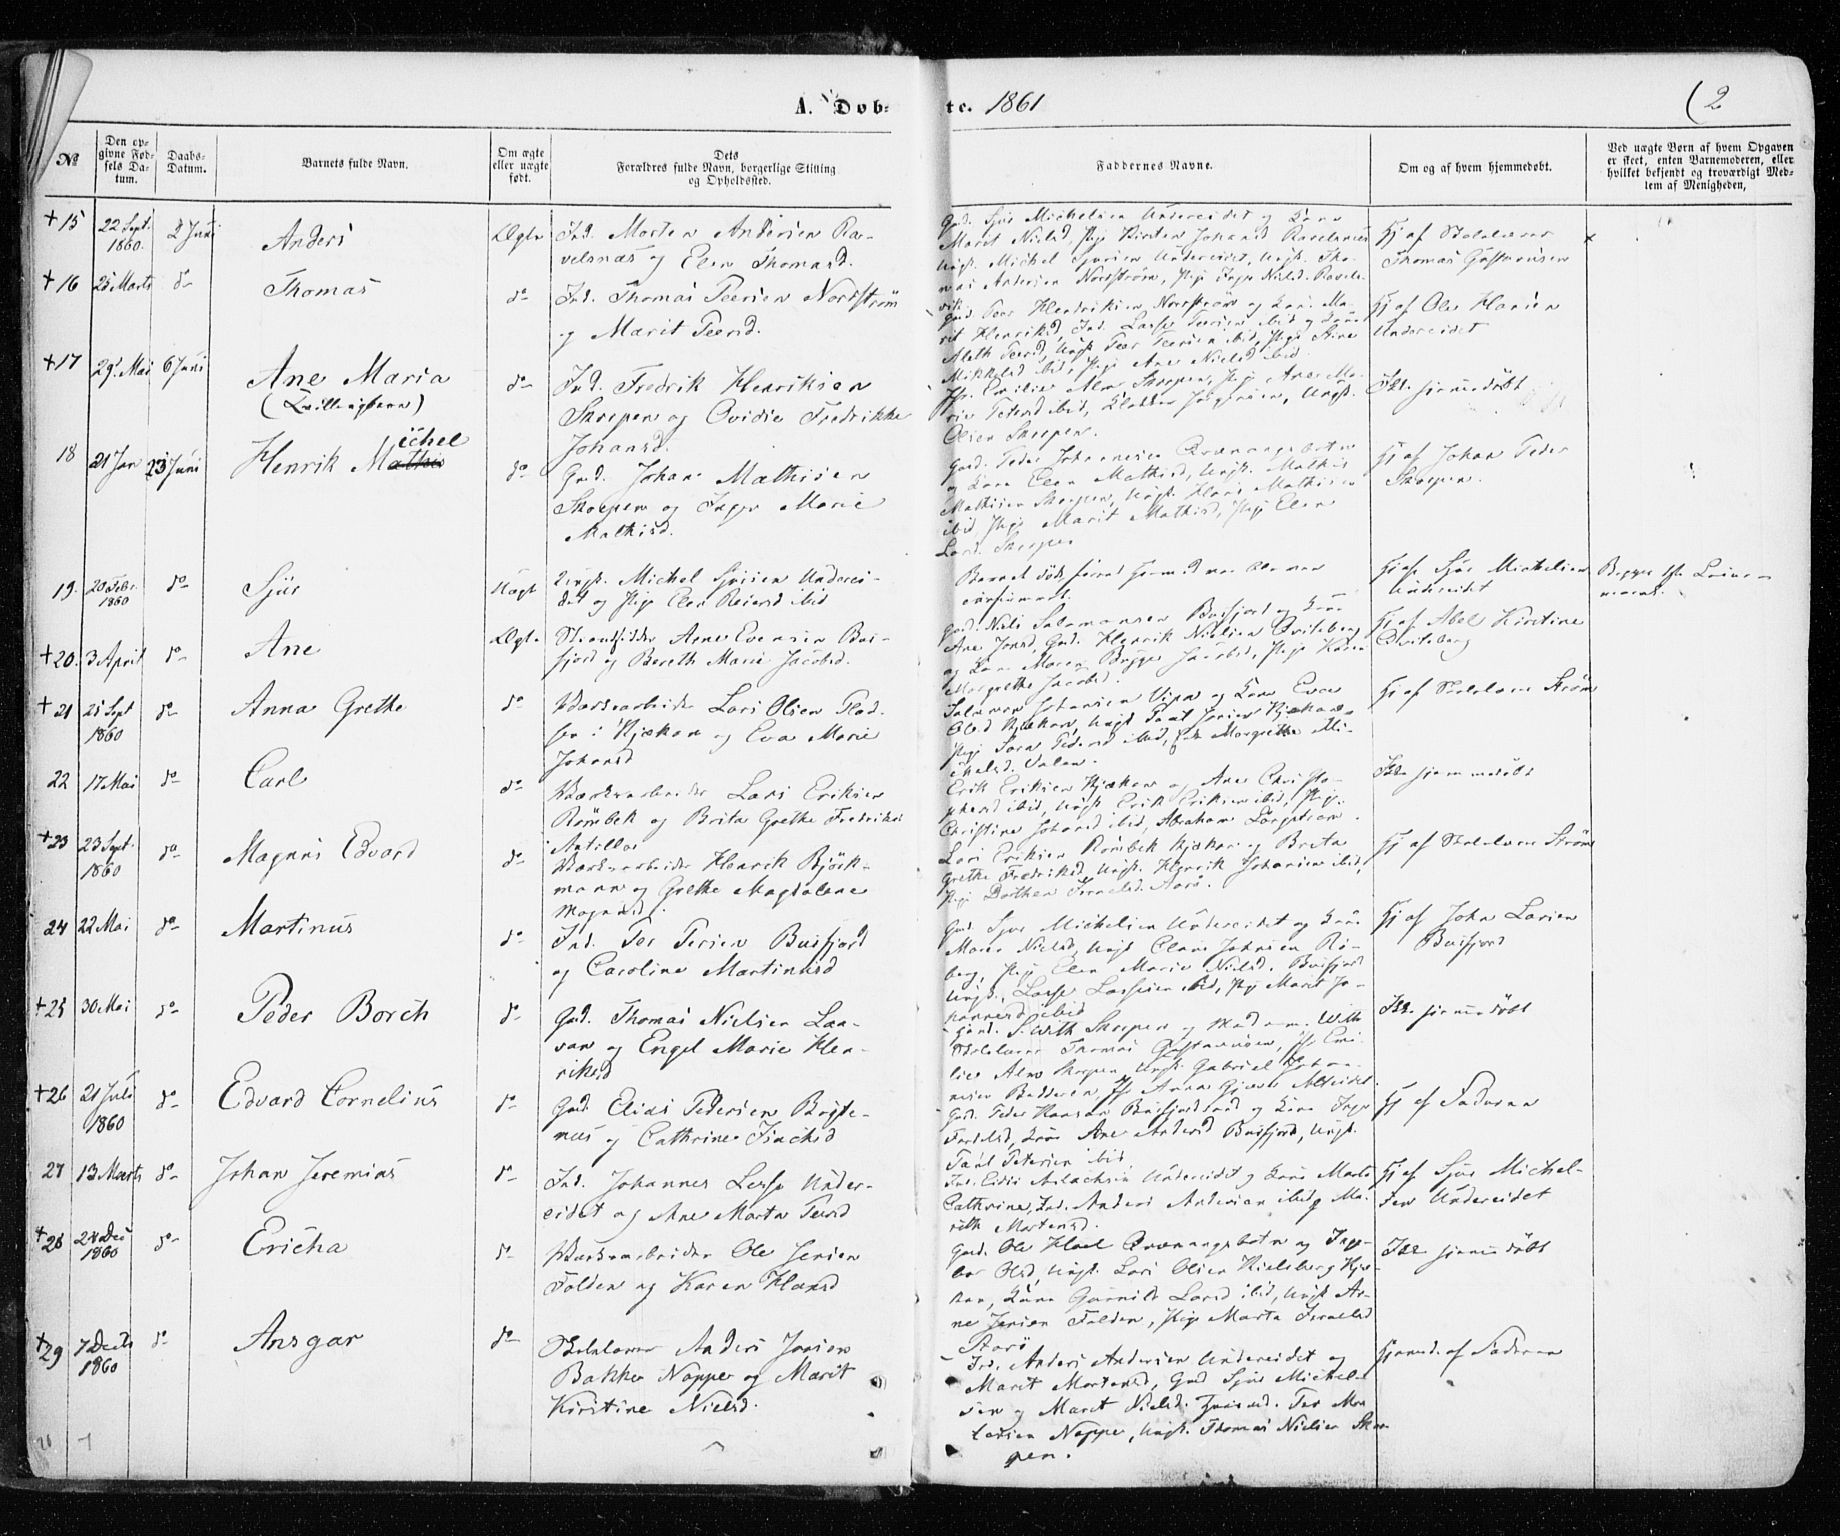 A. Døbte. 1861
(2
No
Den opgivne Fødsels Datum.
Daabs-Datum.
Barnets fulde Navn.
Om ægte eller uægte født.
Dets Forældres fulde Navn, borgerlige Stilling og Opholdssted.
Faddernes Navne.
Om og af hvem hjemmedøbt.
Ved uægte Børn af hvem Opgaven er skeet, enten Barnemoderen, eller hvilket bekjendt og troværdigt Medlem af Menigheden,
+15 22 Sept. 1860. 2 Juni Anders Ægte
Ind. Morten Andersen Ra-
velsnæs og Elen Thomasd.
Gmd. Sjur Michelsen Undereidet og Kone
Marit Nielsd, Pige Kirsten Johansd Ravelsnæs
Ungk. Michel Sjursen Undereidet, Ungk. Tho-
mas Andersen Nordstrøm, Pige Inger Nielsd.
Hj af Skolelærer
Thomas Gustavusen
+16 25 Marts do Thomas do
Ind. Thomas Peersen Nordstrøm
og Marit Peersd.
Gmd. Peer Hendriksen Nordstrøm og Kone Ma-
rit Henriksd, Ind. Lasse Peersen ibid og Kone
Aleth Peersd, Ungk. Peer Peersen ibid, Pige
Mikkelsd ibid, Pige Ane Nielsd ibid.
Hj af Ole Hansen
Undereidet
+17 29 Mai 6 Juni Ane Maria
(Tvillingbarn) do
Ind. Fredrik Henriksen
Skorpen og Ovidie Fredrikke
Johansd.
Jfr. Emilie Alm Skorpen, Pige Ane Ma-
rie Petersd ibid, Klokker Jørgensen, Ungk.
Olsen Skorpen.
Ikke hjemmedøbt
18 21 Jan 23 Juni Henrik Michel do
Gmd. Johan Mathisen
Skorpen og Inger Marie
Mathisd.
Gmd. Peder Johannesen Qvænangsbotn
og Kone Elen Mathisd, Ungk. Mathis
Mathisen Skorpen, Ungk. Hans Mathisen
ibid, Pige Marit Mathisd, Pige Elen
Larsd. Skorpen
Hj af Johan Peder
Skorpen.
19. 20 Febr. 1860 do Sjur Uægt
Ungk. Michel Sjursen Underei-
det og Pige Elen Reiersd ibid
Barnet døde
Hj af Sjur Michelsen
Undereidet
+20. 3 April do Ane Ægte
Strandsidder Arne Evensen Bur-
fjord og Bereth Marie Jacobsd.
Gmd. Niels Salamonsen Burfjord og Kone
Ane Jonsd, Gmd. Henrik Nielsen Qviteberg
og Kone Maren Jacobsd, Pige Karen
Margrethe Jacobsd.
Hj af Abel Kirstine
Qviteberg
+21 25 Sept 1860 do Anna Grethe do
Værksarbeider Lars Olsen
i Kjækan og Eva Marie
Johansd
Salamon Johansen Vipa og Kone Eva
Olsd Kjækan, Ungk Paul Jensen Kjækan,
Pige Sara Pedersd ibid, Margrethe Mi-
chelsd.
Hj af Skolelærer Strøm
22 17 Mai do Carl do
Værksarbeider Lars Eriksen
Rømbek og Brita Grethe Fredriksd
Antilla
Erik Eriksen Kjækan og Ane Christo-
phersd ibid, Ungk Erik Eriksen ibid, Pige
Christine Johansd ibid, Abraham
Ikke hjemmedøbt
+23 23 Sept. 1860 do Magnus Edvard do
Værksarbeider Henrik Bjørk-
mann og Grethe Magdalene
Magnusd.
Lars Eriksen Rømbek Kjækan og Breta
Grethe Fredriksd, Ungk. Henrik Johansen ibid,
Pige Dorthea Israelsd. Aarø.
Hj af Skolelærer Strøm
24 22 Mai do Martinus do
Ind. Per Persen Burfjord
og Caroline Martinusd
Gmd Sjur Michelsen Undereidet og Kone
Maret Nielsd, Ungk Claus Johnsen Rø-
berg, Pige Elen Marie Nielsd. Burfjord
Ungk. Lasse Lassesen ibid, Pige Marit Jo-
hannesd ibid
Hj af John Larsen
Burfjord
+25 30 Mai do Peder Borch do
Gmd. Thomas Nielsen Laa-
van og Engel Marie Hen-
riksd
Hand. S. With Skorpen og Madame With
Skolelærer Thomas Gustavusen, Jfr Emi-
lie Alm Skorpen, Ungk. Gabriel
Badderen, Jfr Anna Gjæver Alteidet.
Ikke hjemmedøbt
+26 21 Juli 1860 do Edvard Cornelius do
Gmd. Elias Pedersen Bøgte-
nes og Cathrine Isachsd
Gmd. Peder Hansen Burfjordand og Kone Inger
Kone Ane Andersd Burfjord, Ungk.
Paul Petersen ibid
Hj af Faderen
27 13 Marts do Johan Jeremias do
Ind. Johannes Lasse Under-
eidet og Ane Marta Peersd
Ind. Aslachsen Undereidet og Kone Marta
Cathrine, Ind. Anders Andersen ibid og Ma-
rith Mortensd.
Hj af Sjur Michel-
sen Undereidet
+28 28 Dec 1860 do Ericha do
Værksarbeider Ole Jensen
Folden og Karen Hansd
Gmd. Ole Qvænangsbotn og Inge-
bor Olsd, Ungk. Lars Olsen Hielsberg Kjæ-
kan, Kone Gunnild Larsd ibid, Ungk Ar-
ne Jensen Folden, Pige Marta Israelsd
Aarø
Ikke hjemmedøbt
+29 7 Decbr 1860 do Ansgar do
Skolelærer Anders Jonsen
Bakke Noppe og Marit
Kirstine Nielsd.
Ind. Anders Andersen Undereidet og
Marit Mortensd, Gmd Sjur Michel-
sen og Maret Nielsd. Per Mor-
tensen Noppe, Ungk. Thomas Nielsen Skor-
pen.
Hjemmed. af Faderen